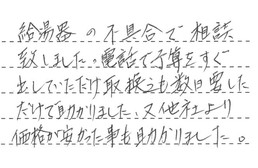 給湯器の不具合で相談
致しました。電話で予算をすぐ
出していただけ取換えも数日要した
だけで助かりました、又他社より
価格が安かった事も助かりました。